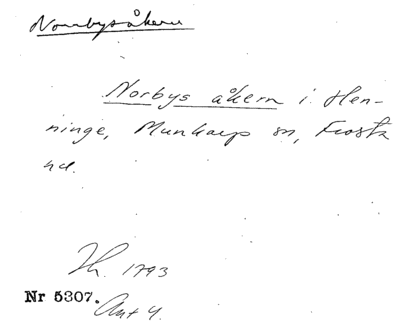 Norrbysåkern
Norbys åkern i Hen-
ninge, Munkarp sn, Frosta
hd.
Th. 1793
Nr 5307.
Ant 4.